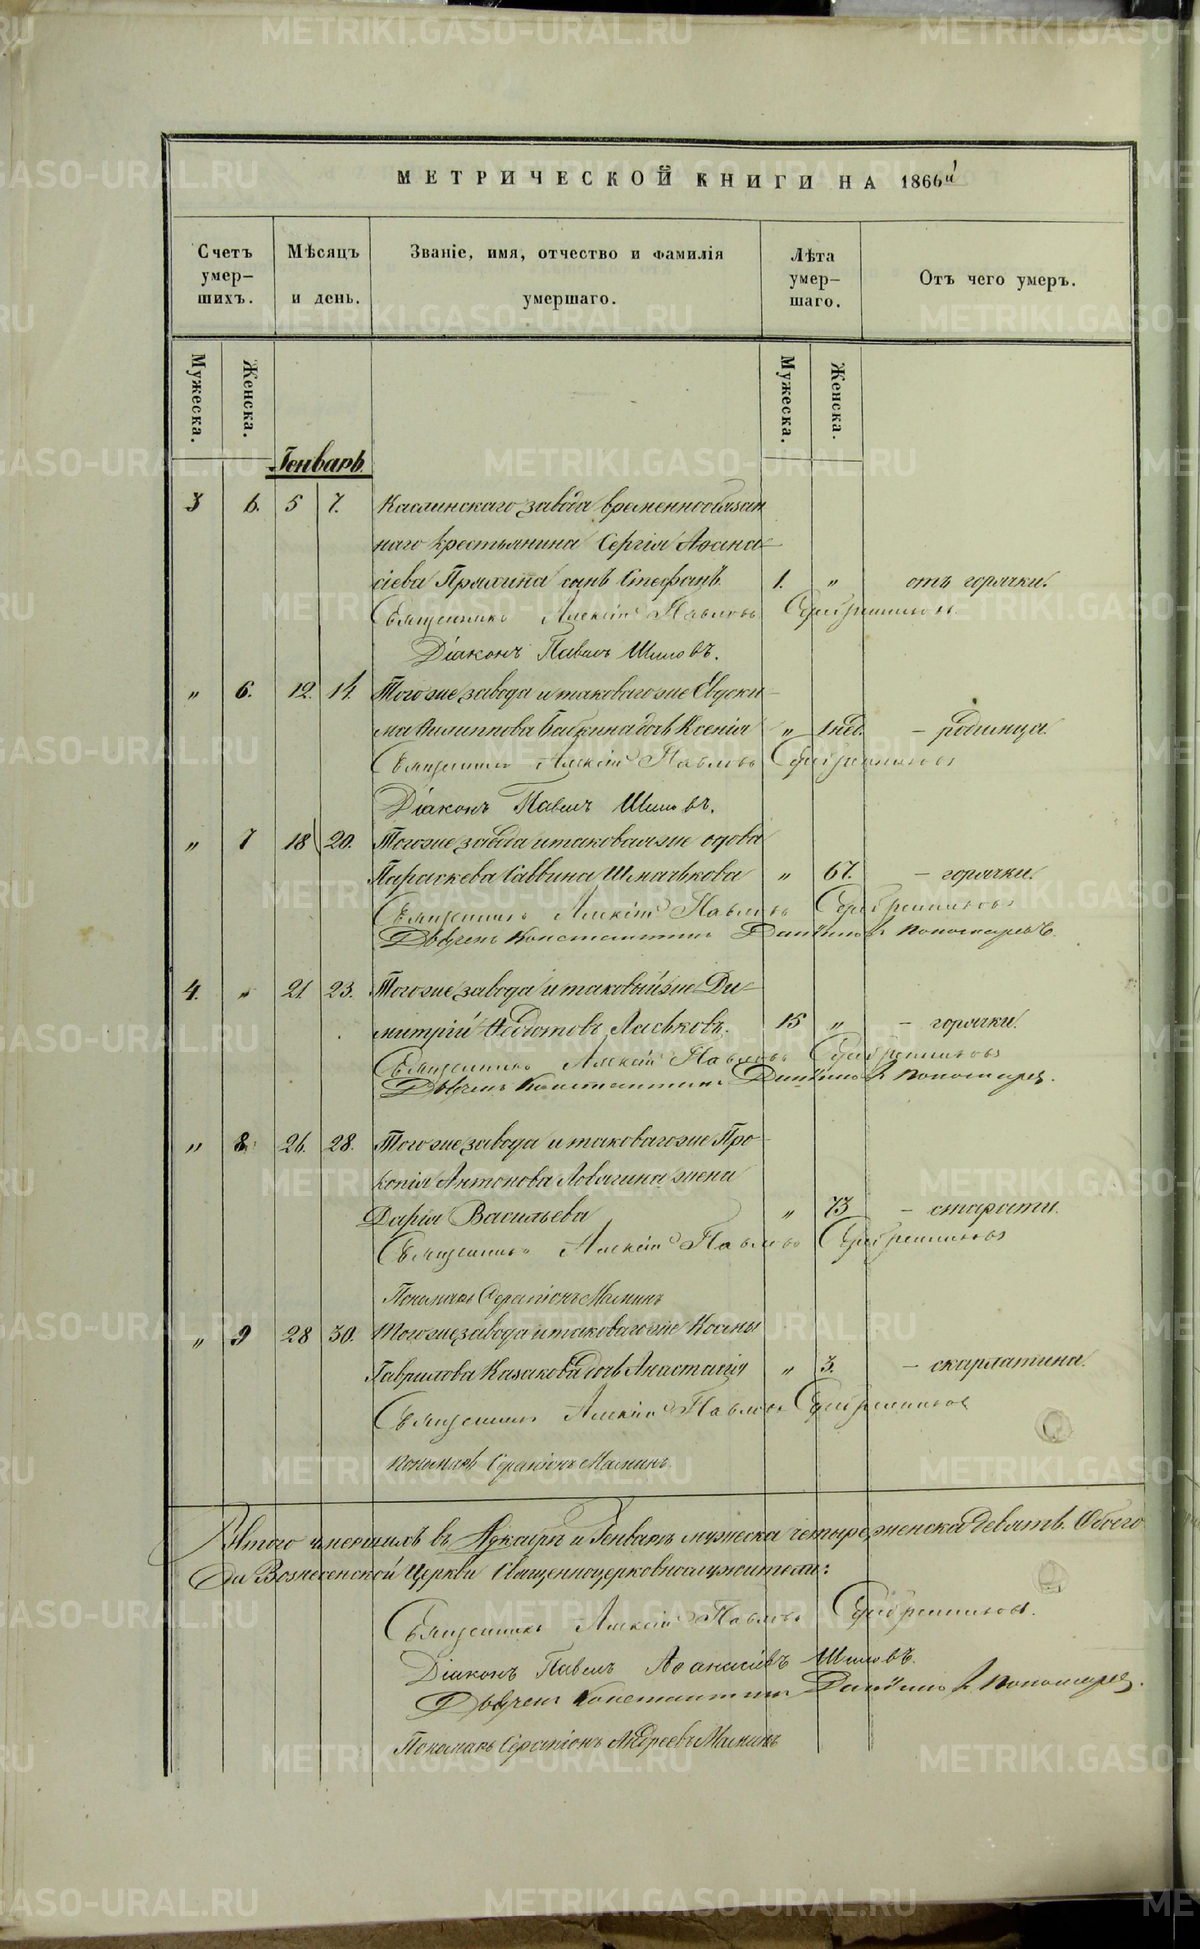 МЕТРИЧЕСКОЙ КНИГИ НА 1866й
Счетъ умер- шихъ.
Мѣсяцъ и день.
Званіе, имя, отчество и фамилія умершаго.
Лѣта умер- шаго.
Отъ чего умеръ.
Мужеска. Женска. Мужеска. Женска.
Генварь
3 6. 5 7. Каслинскаго завода временнообязан
наго крестьянина Сергія Афана-
сіева Пряхина сынъ Стефанъ. 1. „ отъ горячки.
Священникъ Алексій Павловъ Серебренниковъ
Діаконъ Павелъ Шиловъ.
„ 6. 12. 14. Тогоже завода и таковагоже Евдоки-
ма Филиппова Бабкина дочь Ксенія „ 1 нед. – родимца.
Священникъ Алексій Павловъ Серебренниковъ
Діаконъ Павелъ Шиловъ.
„ 7 18 20. Тогоже завода и таковаяже вдова
Параскева Саввина Шмачькова „ 67. – горячки.
Священникъ Алексій Павловъ Серебренниковъ
Дьячекъ Константинъ Даниловъ Пономаревъ.
4. „ 21 23. Тогоже завода и таковыйже Ди-
митрій Ѳедотовъ Ласьковъ. 15 „ – горячки.
Священникъ Алексій Павловъ Серебренниковъ
Дьячекъ Константинъ Даниловъ Пономарев.
„ 8. 26. 28. Тогоже завода и таковагоже Про-
копія Антонова Ловягина жена
Дарья Васильева „ 73 – старости.
Священникъ Алексій Павловъ Серебренниковъ
Пономарь Серапіонъ Маминъ
„ 9 28 30. Тогоже завода и таковагоже Космы
Гаврилова Казакова дочь Анастасія „ 3. – скарлатина.
Священникъ Алексій Павловъ Серебренниковъ
Пономарь Серапіонъ Маминъ.
Итого умершихъ въ Генварѣ мужеска четыре, женска девять. Обоего
Вознесенской Церкви Священноцерковнослужители:
Священникъ Алексій Павловъ Серебренниковъ.
Діаконъ Павелъ Афанасіевъ Шиловъ.
Дьячекъ Константинъ Даниловъ Пономарев.
Пономарь Серапіонъ Андреевъ Маминъ
METRIKI.GASO-URAL.RU